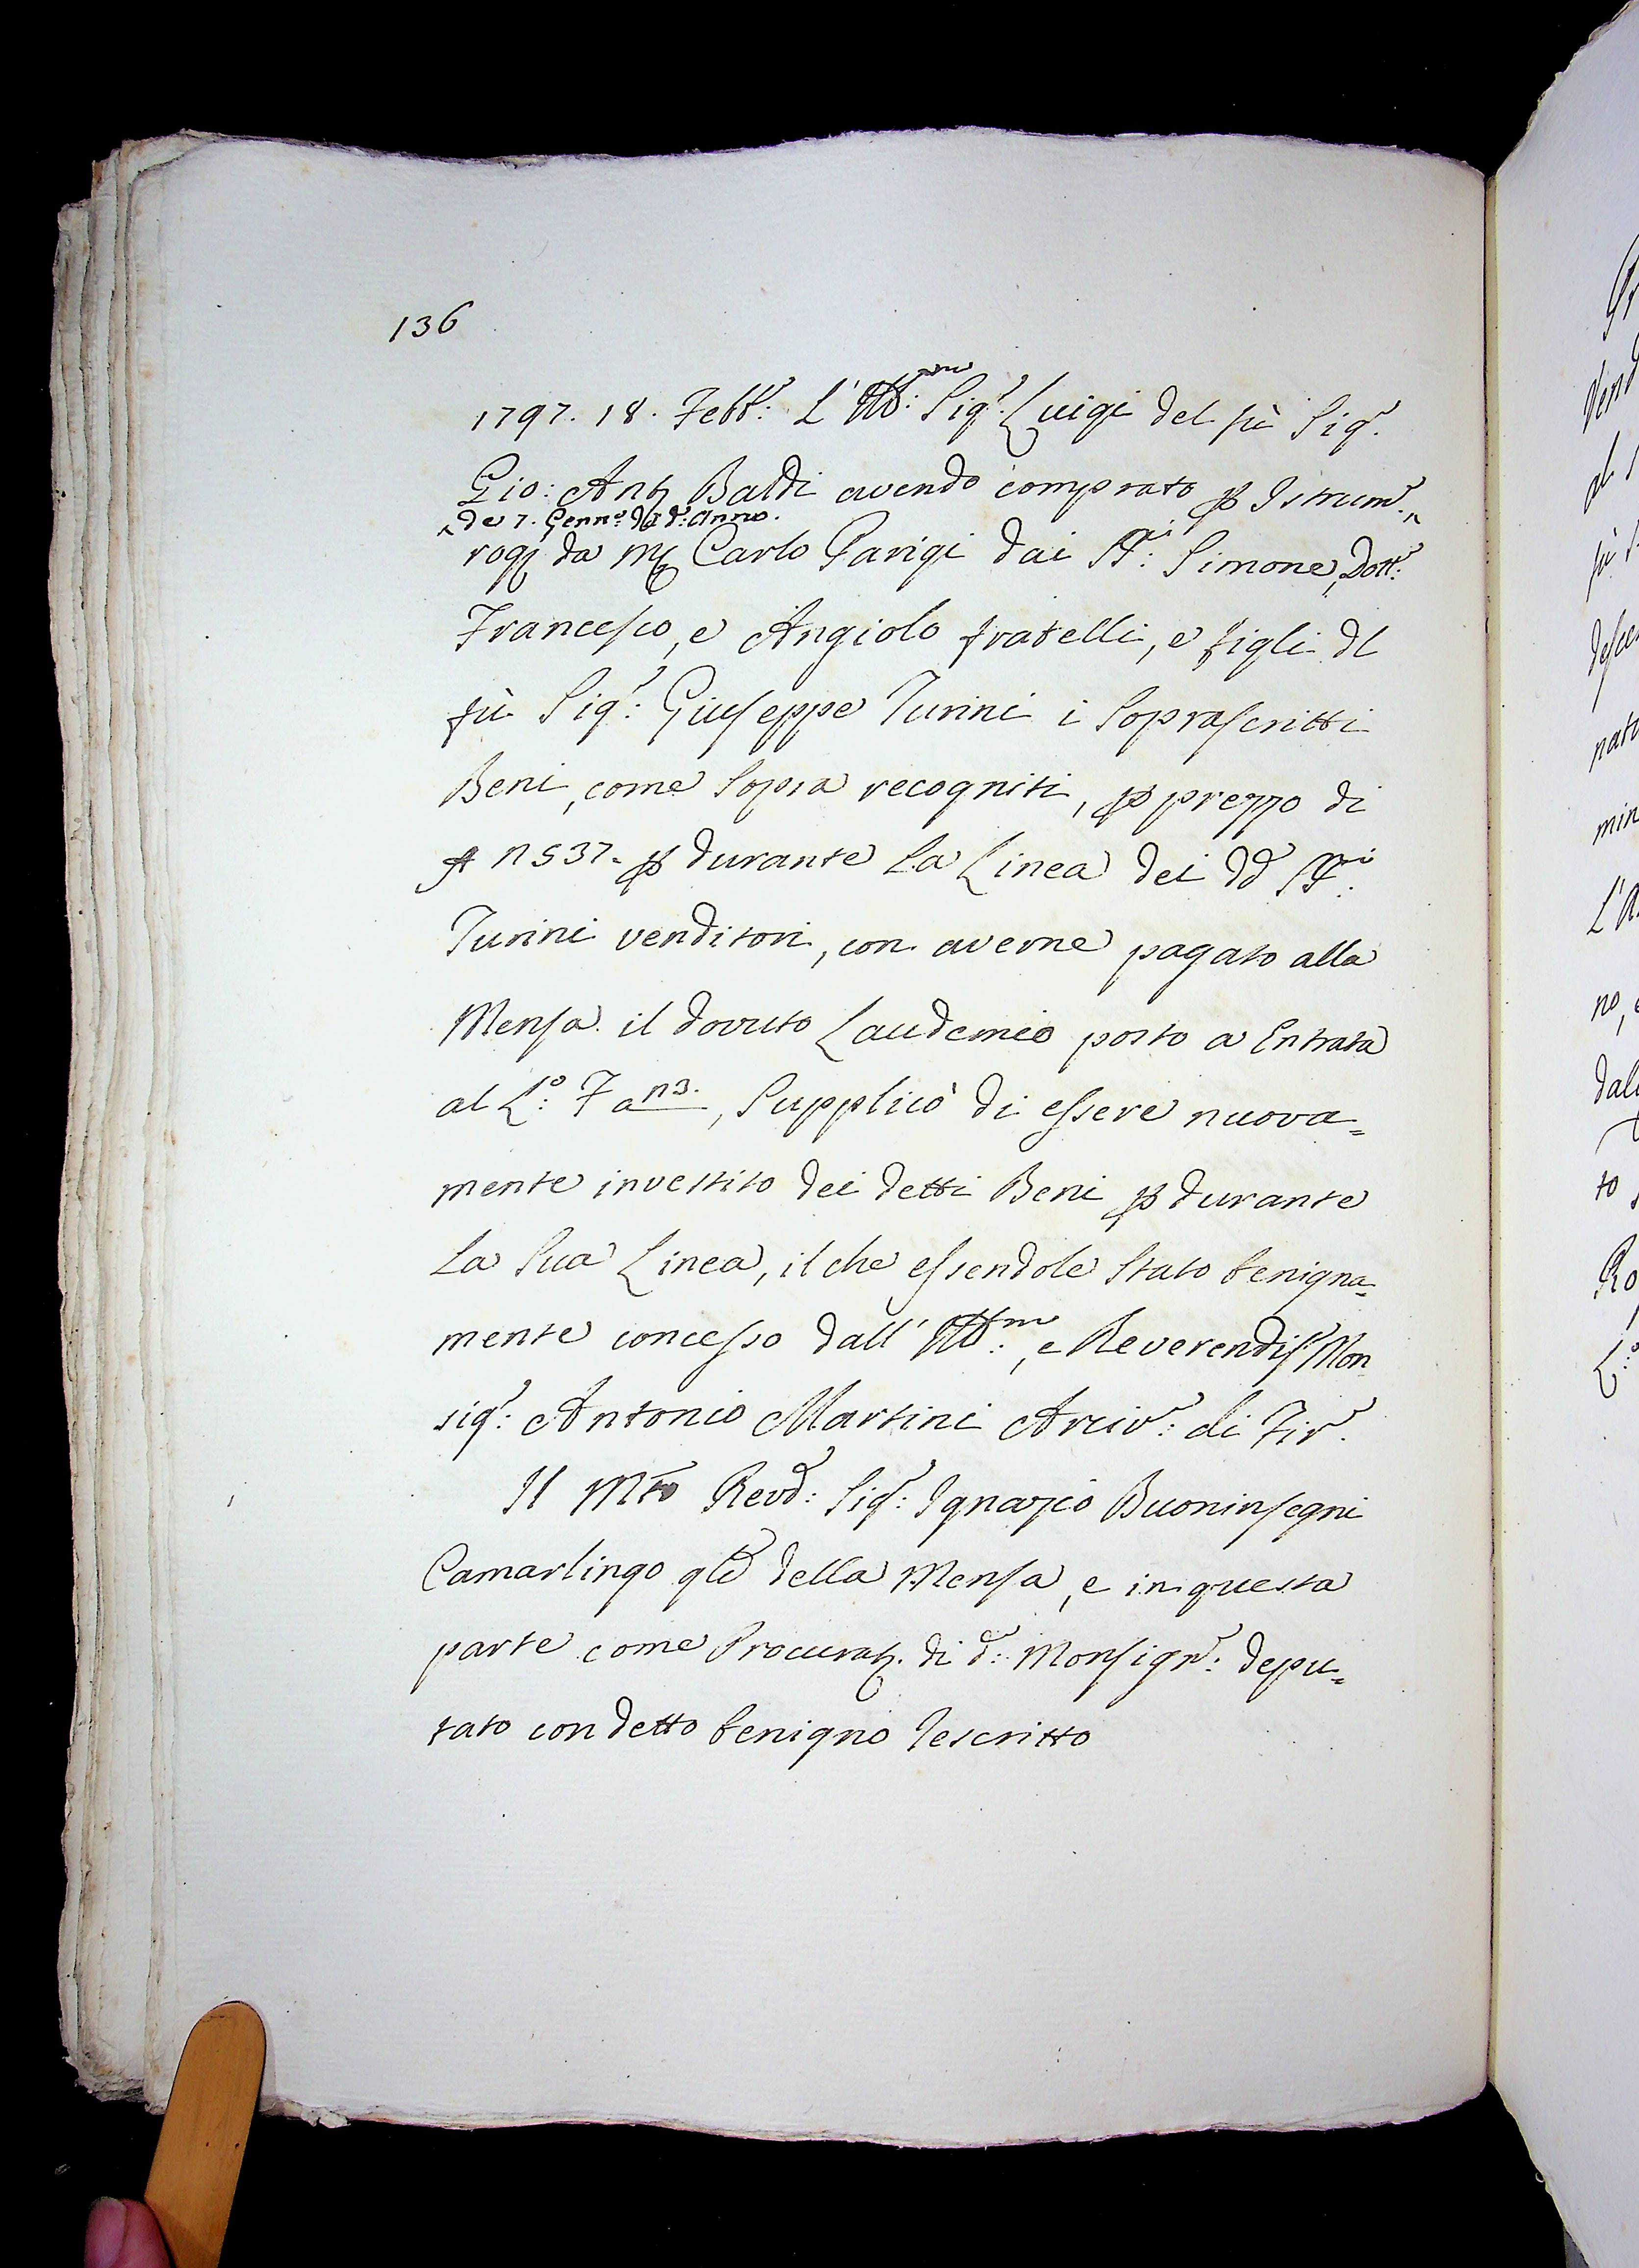 136
1797. 18. Febb.: L'Ill.mo Sig.r Luigi del fù Sig.r
Gio: Ant.o Baldi avendo comprato p Istrum.
de 7. Genn.o del d.o anno.
rog.o da M. Carlo Parigi dai SS.ri Simone, Dott.r
Francesco, e Angiolo fratelli, e figli dl
fù Sig.r Giuseppe Turini i Soprascritti
Beni, come Sopra recogniti, p prezzo di
1537. p durante la Linea dei dd SS.ri
Turini venditori, con averne pagato alla
Mensa il dovuto Laudemio posto a Entrata
al L.o F a 113., Supplicò di essere nuova=
mente investito dei detti Beni p durante
la Sua Linea, il che essendole Stato benigna=
mente concesso dall' Ill.mo, e Reverendiss. Mon
sig.r Antonio Martini Arciv.o di Fir.
Il Mto Revd: Sig.r Ignazio Buoninsegni
Camarlingo gle della Mensa, e in questa
parte come Procurat. di d.o Monsign.r depu=
tato con detto benigno Rescritto